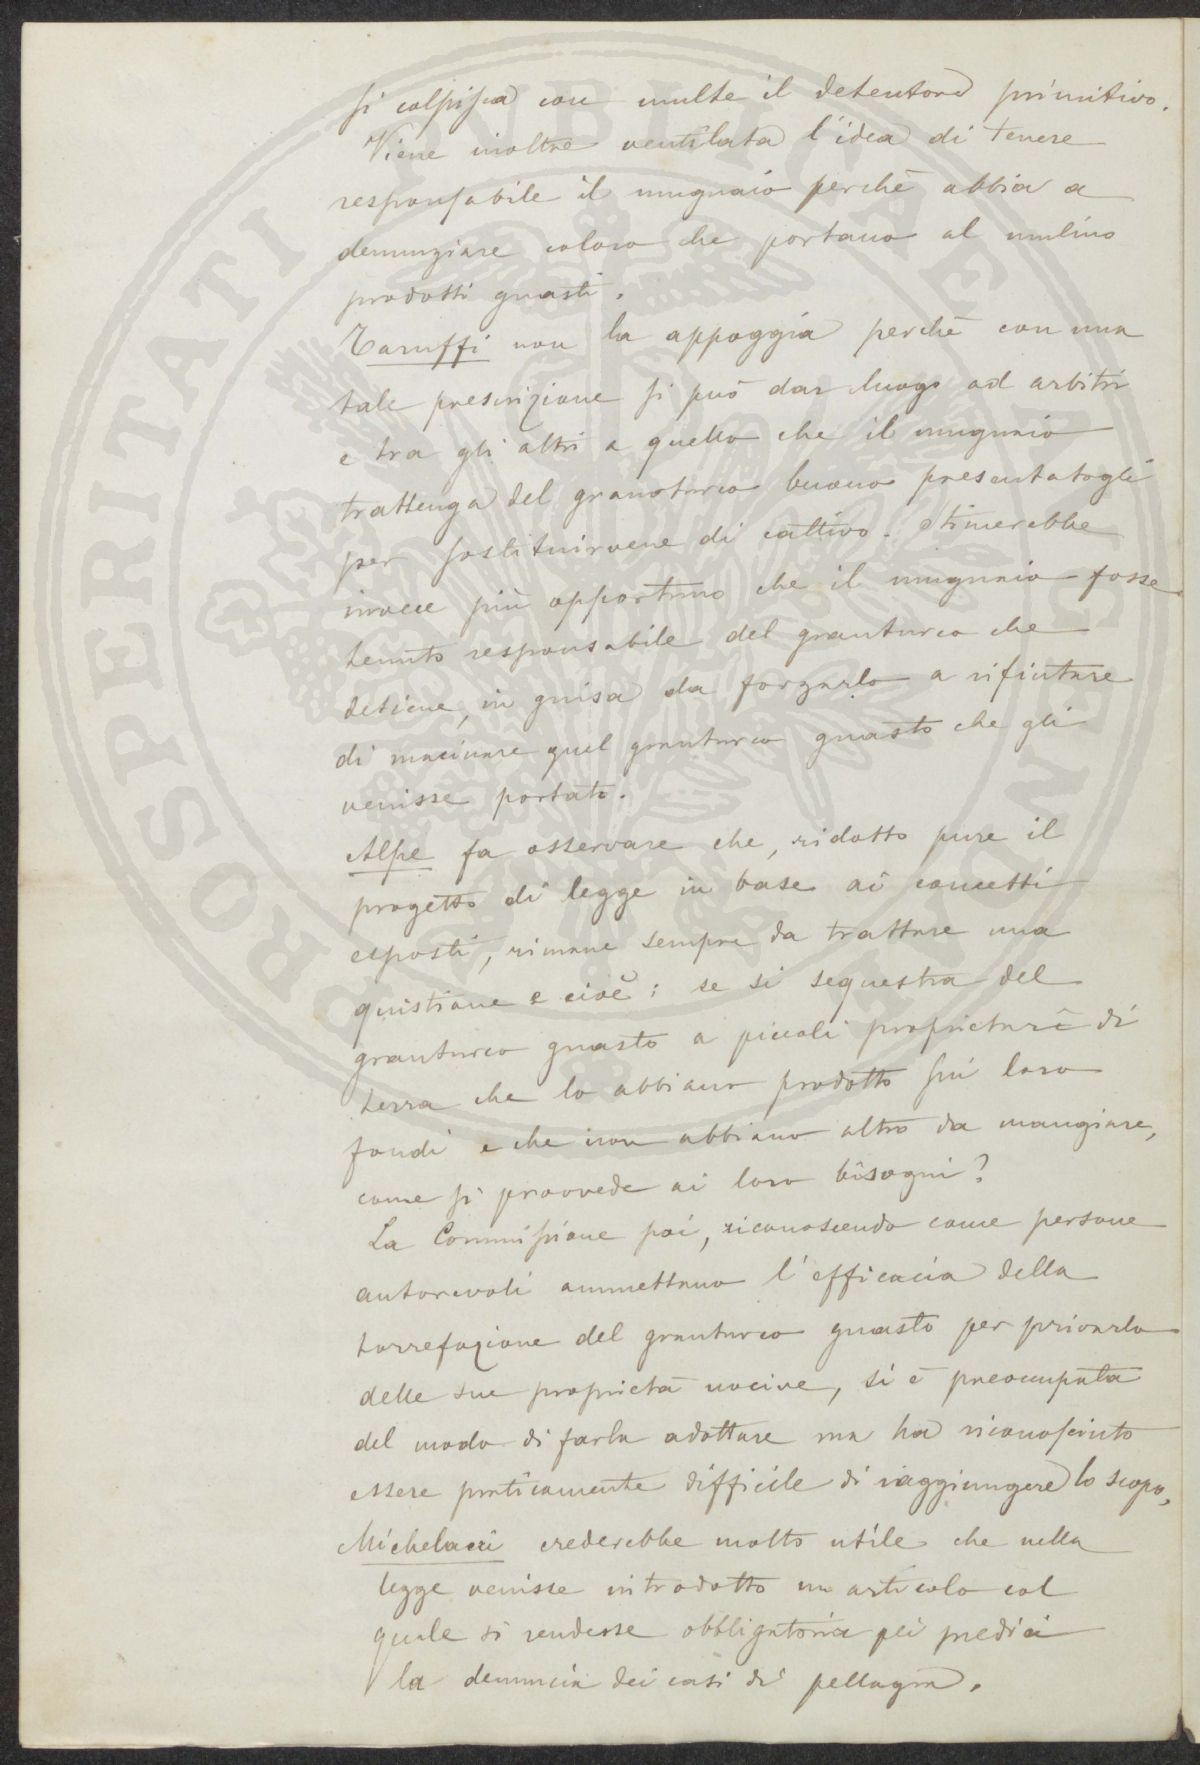 si colpisca con multe il detentore primitivo.
Viene inoltre ventilata l'idea di tenere
responsabile il mugnaio perchè abbia a
denunziare coloro che portano al mulino
prodotti guasti.
Taruffi non la appoggia perchè con una
tale prescrizione si può dar luogo ad arbitri
e tra gli altri a quello che il mugnaio
trattenga del granoturco buono presentatogli
per sostituirvene di cattivo. Stimerebbe
invece più opportuno che il mugnaio fosse
tenuto responsabile del granturco che
detiene, in guisa da forzarlo a rifiutare
di macinare quel granturco guasto che gli
venisse portato.
Alpe fa osservare che, ridotto pure il
progetto di legge in base ai concetti
esposti, rimane sempre da trattare una
quistione e cioè: se si sequestra del
granturco guasto a piccoli proprietari di
terra che lo abbiano prodotto sui loro
fondi e che non abbiano altro da mangiare,
come si provvede ai loro bisogni?
La Commissione poi, riconoscendo come persone
autorevoli ammettano l'efficacia della
torrefazione del granturco guasto per privarlo
delle sue proprietà nocive, si è preoccupata
del modo di farla adottare ma ha riconosciuto
essere praticamente difficile di raggiungere lo scopo.
Michelacci crederebbe molto utile che nella
legge venisse introdotto un articolo col
quale si rendesse obbligatoria pei medici
la denuncia dei casi di pellagra.
PROSPERITATI PVBLICAE